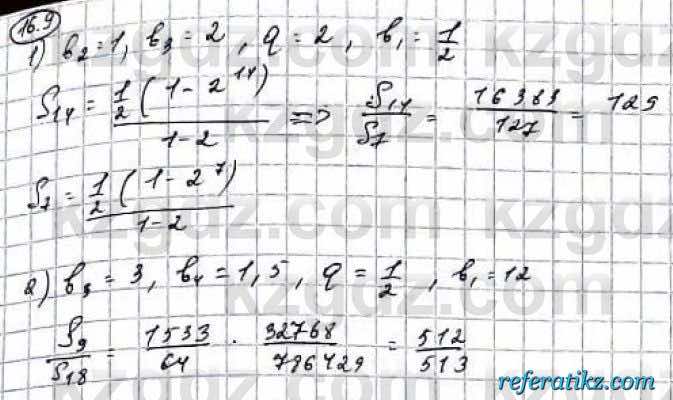 16.9
1) b₂ = 1, b₃ = 2, q = 2, b₁ = 1/2
S₁₄ = 1/2 (1 - 2¹⁴) / (1 - 2) => S₁₄/S₇ = 16383/127 = 129
S₇ = 1/2 (1 - 2⁷) / (1 - 2)
2) b₃ = 3, b₄ = 1,5, q = 1/2, b₁ = 12
S₉/S₁₈ = 1533/64 · 32768/786429 = 512/513
referatikz.com